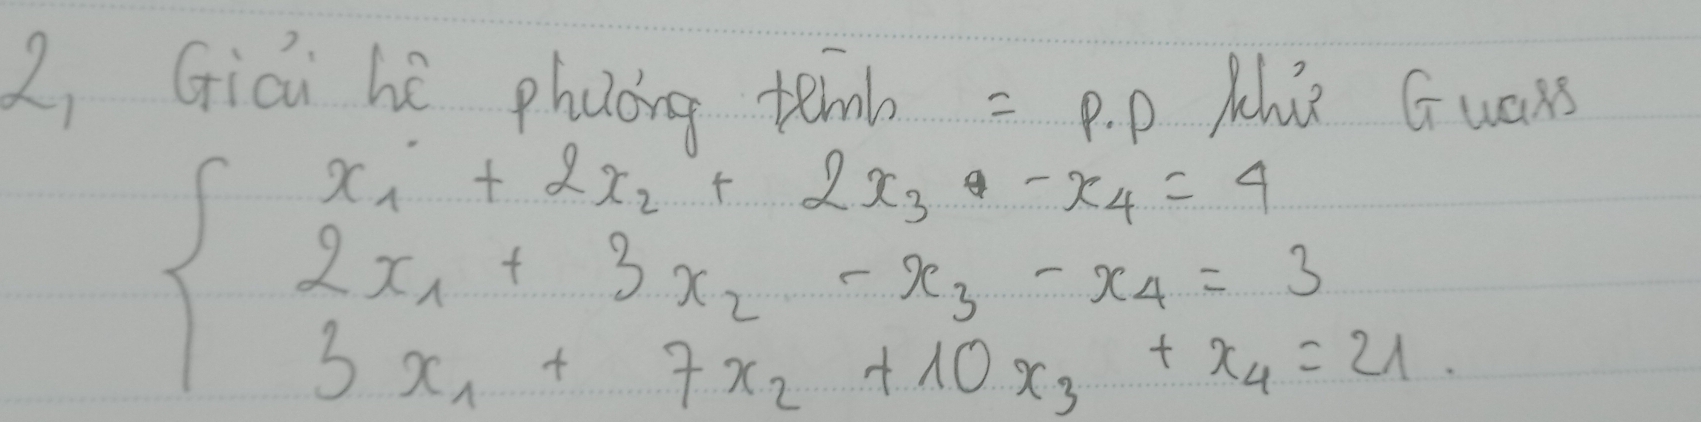 2, Giải hê phướng tềnh = p.p khử Guass
x₁ + 2x₂ + 2x₃ - x₄ = 4
2x₁ + 3x₂ - x₃ - x₄ = 3
3x₁ + 7x₂ + 10x₃ + x₄ = 21.